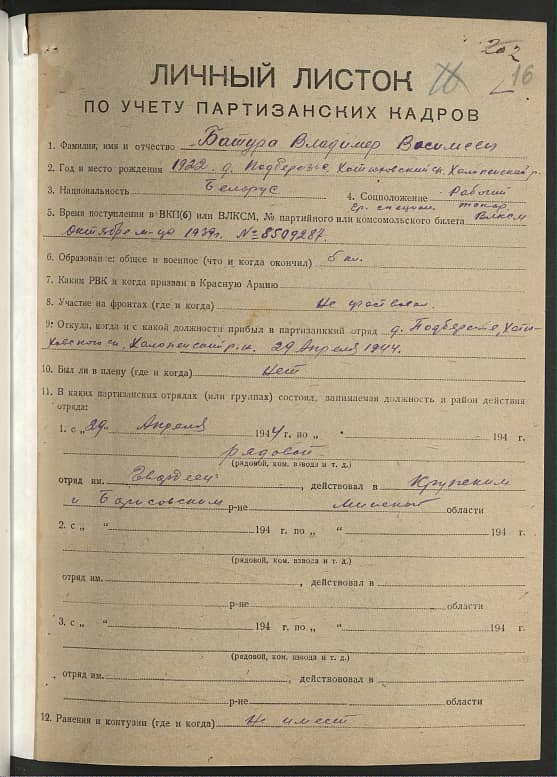 202
16
ЛИЧНЫЙ ЛИСТОК
ПО УЧЕТУ ПАРТИЗАНСКИХ КАДРОВ
1. Фамилия, имя и отчество Батура Владимир
2. Год и место рождения 1922 д. Подберозье
3. Национальность Белорус 4. Соцположение Рабочий
токар
5. Время поступления в ВКП(б) или ВЛКСМ, № партийного или комсомольского билета ВЛКСМ
Октябре м-це 1939г. № 8509287.
6. Образование: общее и военное (что и когда окончил) 5 кл.
7. Каким РВК и когда призван в Красную Армию
8. Участие на фронтах (где и когда) Не участвовал
9. Откуда, когда и с какой должности прибыл в партизанкий отряд д.
29 Апреля 1944.
10. Был ли в плену (где и когда) Нет
11. В каких партизанских отрядах (или группах) состоял, занимаемая должность и район действия
отряда:
1. с „29“ Апреля 1944 г. по „ “ 194 г.
рядовой
(рядовой, ком. взвода и т. д.)
отряд им. Гвардеец, действовал в Крупским
и Борисовским р-не Минской области
2. с „ “ 194 г. по „ “ 194 г.
(рядовой, ком. взвода и т. д.)
отряд им. , действовал в
р-не области
3. с „ “ 194 г. по „ “ 194 г.
(рядовой, ком. взвода и т. д.)
отряд им. , действововал в
р-не области
12. Ранения и контузии (где и когда) Не имеет